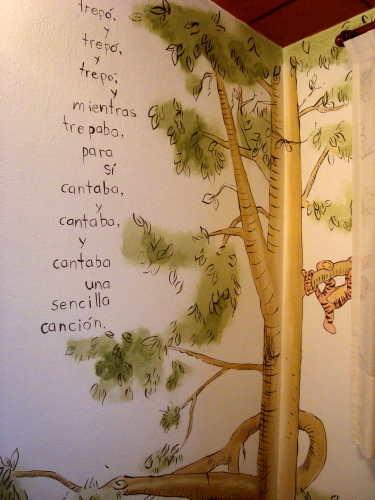 trepó,
y
trepó,
y
trepó,
y
mientras
trepaba,
para
sí
cantaba,
y
cantaba,
y
cantaba
una
sencilla
canción.